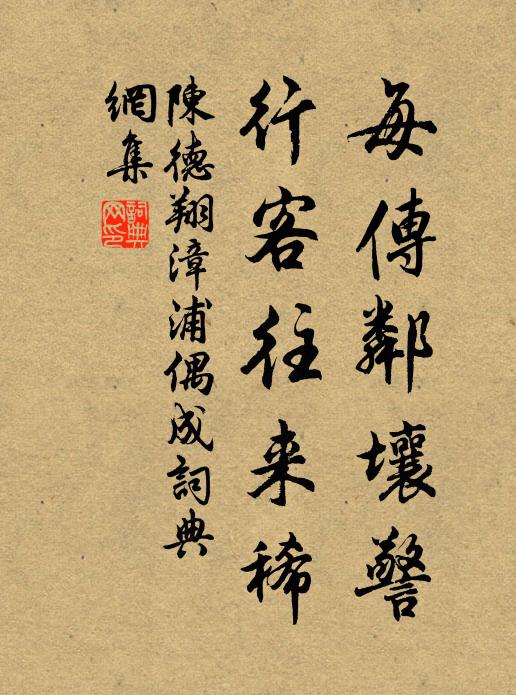 每傳鄰壤警
行客往来稀
陳德翔漳浦偶成詞典
網集
詞典
網印